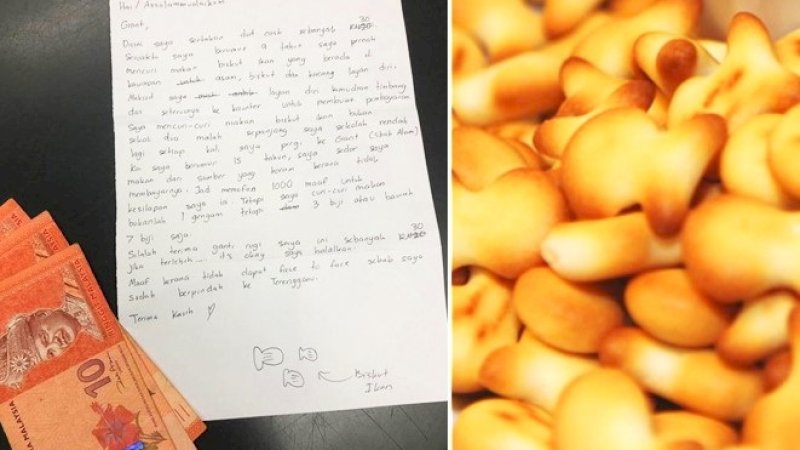 Hai / Assalammualaikum
Giant,
Disini saya sertakan duit cash sebanyak RM 30
Semasa saya berumur 9 tahun saya pernah
mencuri makan biskut ikan yang berada di
bawaan asam, biskut dan kacang layan diri.
Maksud saya layan diri kemudian timbang
dan seterusnya ke kaunter untuk membuat pembayaran
Saya mencuri-curi makan biskut ikan bukan
sekali dua malah sepanjang saya sekolah rendah
lagi setiap kali saya pergi ke Giant (Shah Alam)
Ka saya berumur 15 tahun, saya sedar saya
makan dari sumber yang haram kerana tidak
membayarnya. Jadi memohon 1000 maaf untuk
kesilapan saya ini Tetapi saya curi-curi makan
bukanlah 1 gengam tetapi 3 biji atau bawah
7 biji saja.
Silalah terima ganti rugi saya ini sebanyak RM 30
Jika terlebih.... it's okay saya halalkan.
Maaf kerana tidak dapat face to face sebab saya
sudah berpindah ke Terengganu.
Terima Kasih
Biskut
Ikan
10
MALAYSIA